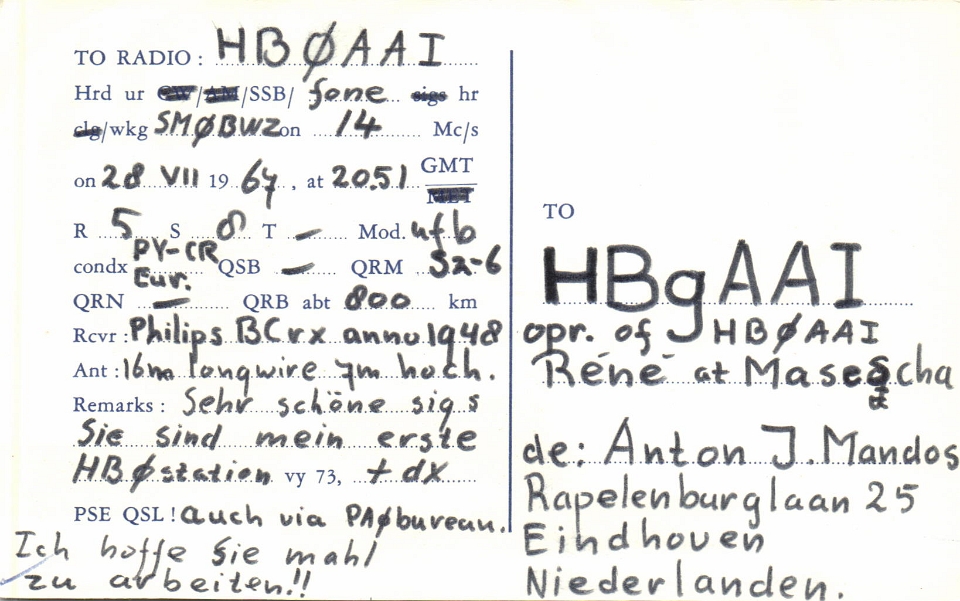 TO RADIO: HBØAAI
Hrd ur CW/AM/SSB/ fone sigs hr
clg/wkg SMØBWZ on 14 Mc/s
on 28 VII 19 67, at 20.51 GMT
MET
R 5 S 8 T – Mod. ufb
condx PY-CR
Eur. QSB – QRM S2-6
QRN – QRB abt 800 km
Rcvr: Philips BC rx anno 1948
Ant: 16m longwire 7m hoch.
Remarks: Sehr schöne sigs
Sie sind mein erste
HBØ station vy 73, + dx
PSE QSL! auch via PAØ bureau.
Ich hoffe Sie mahl
zu arbeiten!!
TO
HB9AAI
opr. of HBØAAI
René at Masescha
de: Anton J. Mandos
Rapelenburglaan 25
Eindhoven
Niederlanden.